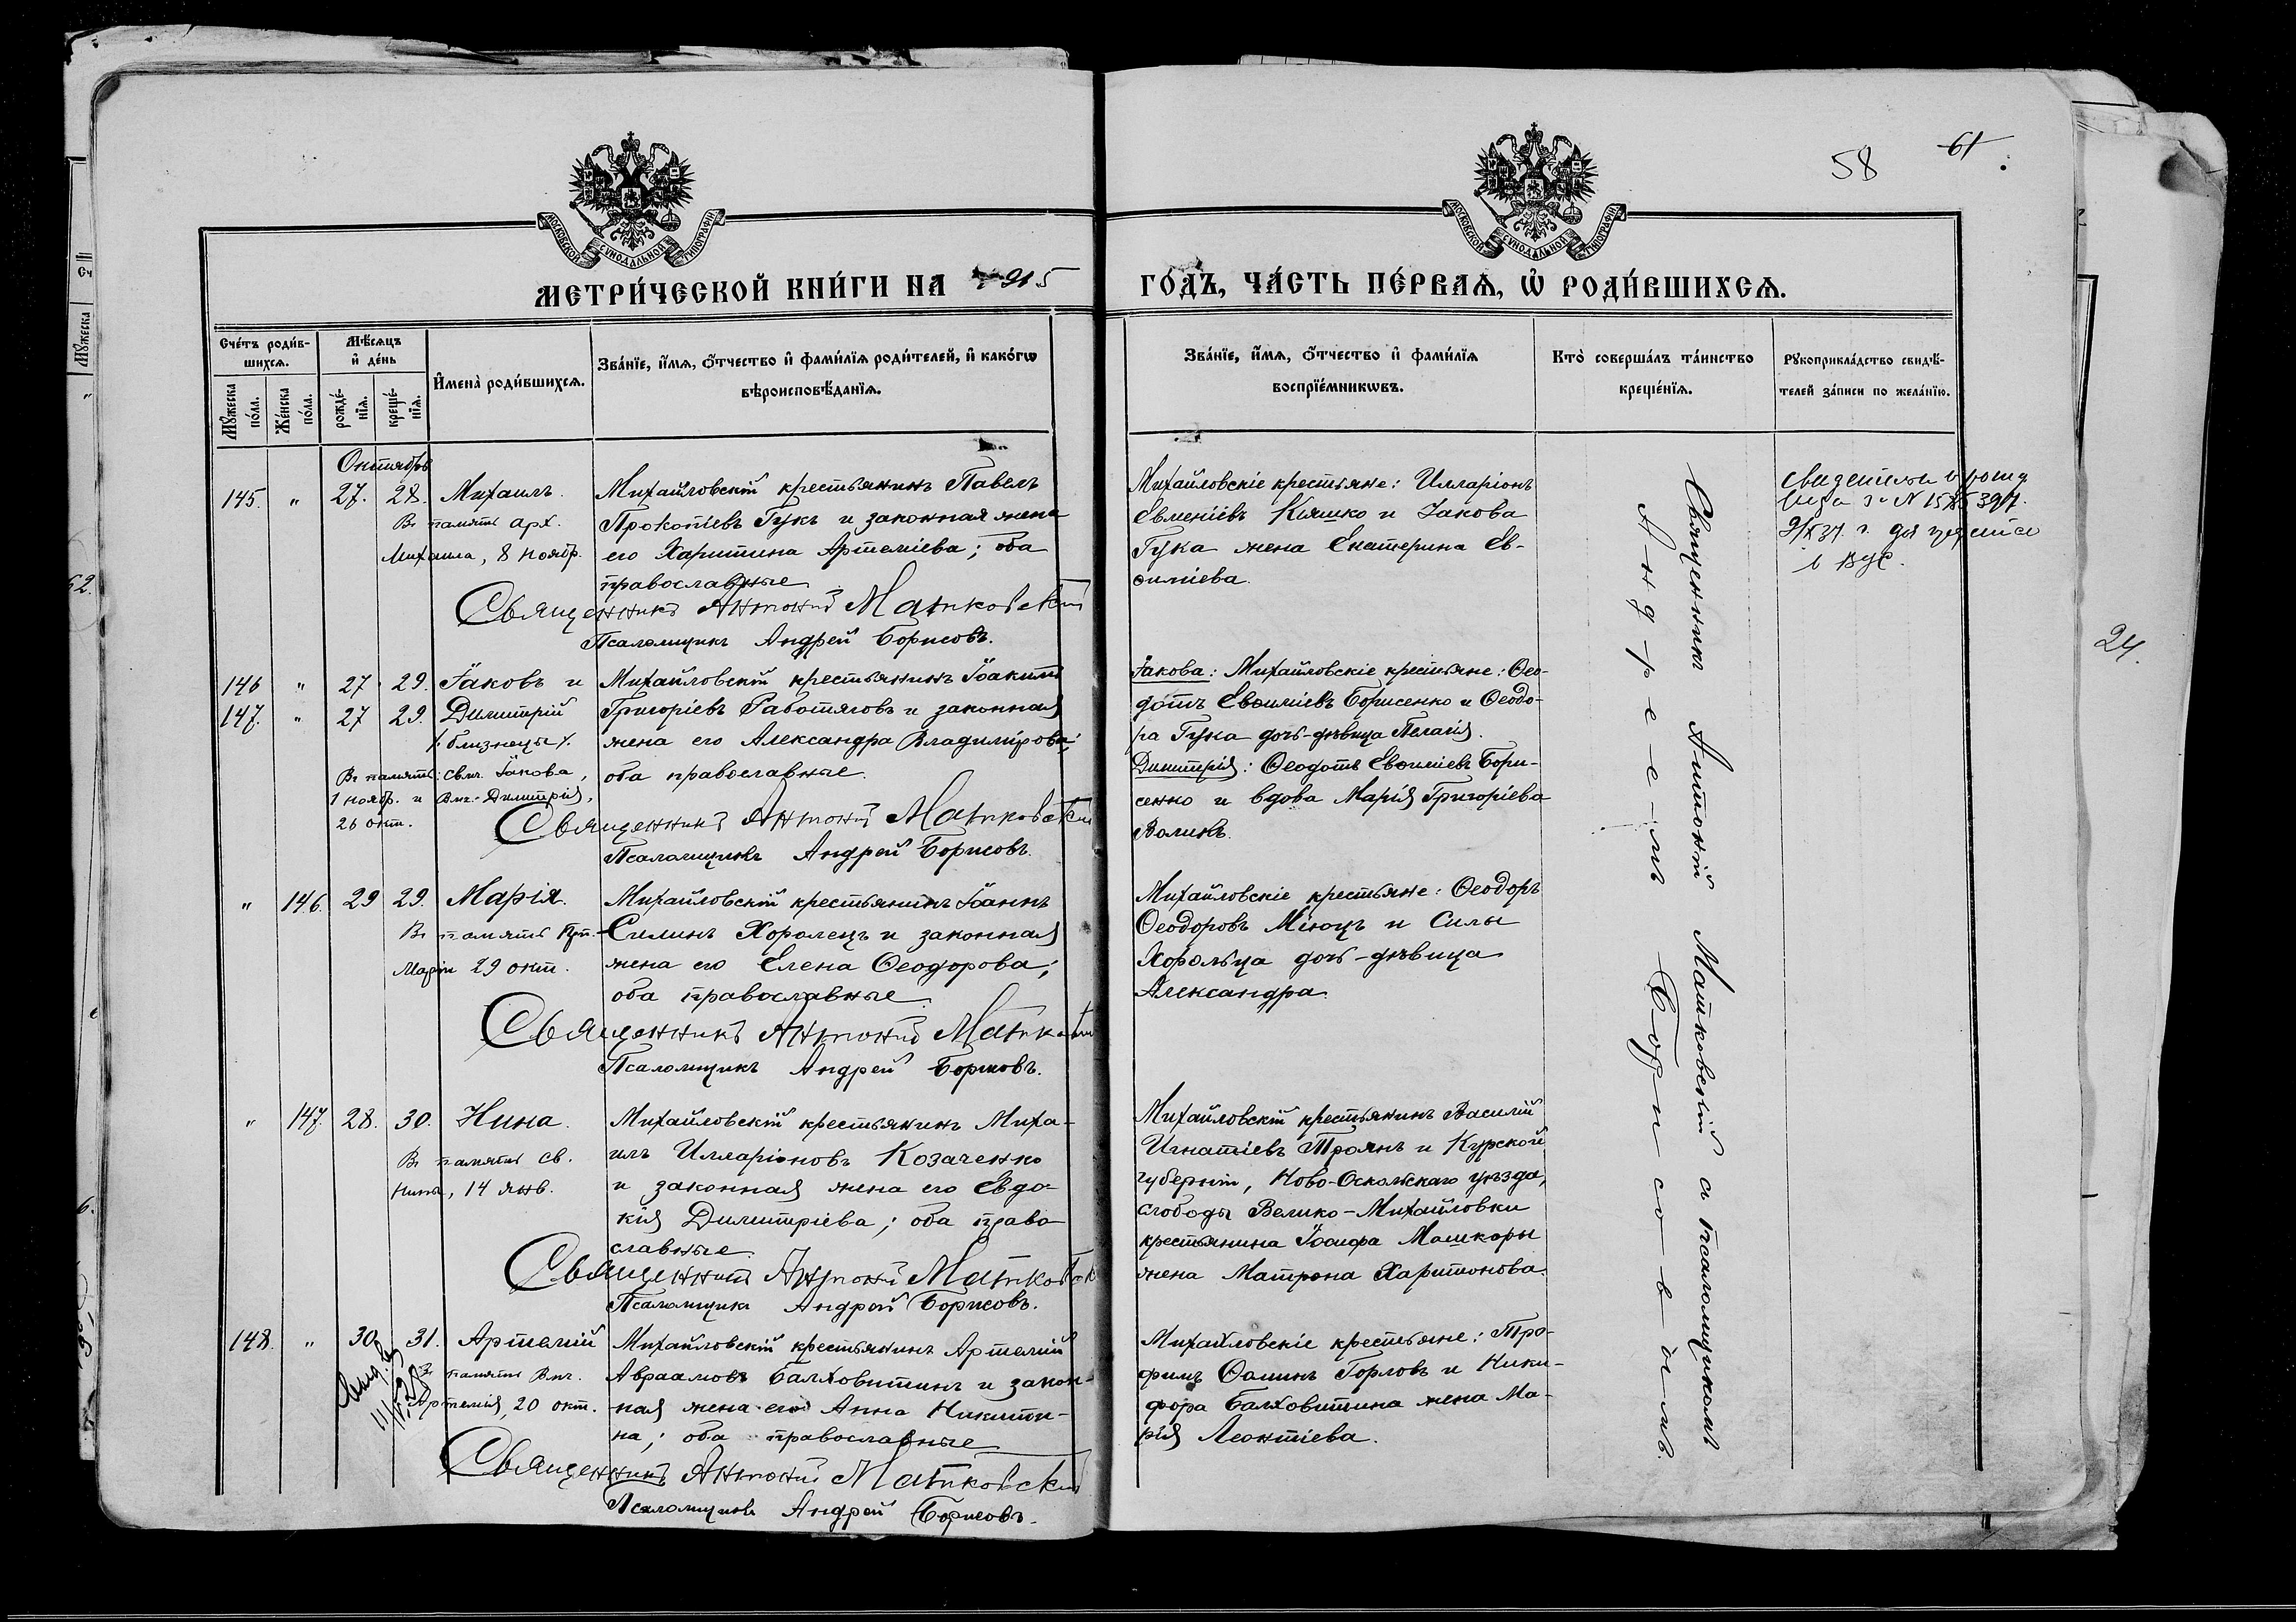 58 61
МОСКОВСКОЙ СѴНОДАЛЬНОЙ ТИПОГРАФІИ
МОСКОВСКОЙ СѴНОДАЛЬНОЙ ТИПОГРАФІИ
МЕТРИ́ЧЕСКОЙ КНИ́ГИ НА 1915
ГО́ДЪ, ЧА́СТЬ ПЕ́РВАѦ, Ѽ РОДИ́ВШИХСѦ.
Сче́тъ роди́в-
шихсѧ.
Мꙋ́жеска по́ла.
Же́нска по́ла.
Мѣ́сѧцъ
и҆ де́нь
рожде́-нїѧ.
креще́-нїѧ.
И҆мена̀ роди́вшихсѧ.
Зва́нїе, и҆́мѧ, ѻ҆́тчество и҆ фами́лїѧ роди́телей, и҆ како́гѡ
вѣроисповѣ́данїѧ.
Зва́нїе, и҆́мѧ, ѻ҆́тчество и҆ фами́лїѧ
воспрїе́мникѡвъ.
Кто̀ соверша́лъ та́инство
креще́нїѧ.
Рꙋкоприкла́дство свидѣ́-
телей за́писи по жела́нїю.
Октябрь
145. " 27. 28. Михаилъ.
Въ память арх.
Михаила, 8 ноябр.
Михайловскій крестьянинъ Павелъ
Прокопіевъ Гукъ и законная жена
его Харитина Артеміева; оба
православные
Священникъ Антоній Матковскій
Псаломщикъ Андрей Борисовъ.
Михайловскіе крестьяне: Илларіонъ
Евменіевъ Кіяшко и Іакова
Гука жена Екатерина Ев-
ѳиміева.
146 " 27 29. Іаковъ и
147. " 27 29. Димитрій
/. близнецы /.
Въ память: свмч. Іакова,
1 нояб. и Вмч. Димитрія,
26 окт.
Михайловскій крестьянинъ Іоакимъ
Григоріевъ Работяговъ и законная
жена его Александра Владимірова;
оба православные.
Священникъ Антоній Матковскій
Псаломщикъ Андрей Борисовъ.
Іакова: Михайловскіе крестьяне: Ѳео-
дотъ Евѳиміевъ Борисенко и Ѳеодо-
ра Гука дочь-дѣвица Пелагія.
Димитрія: Ѳеодотъ Евѳиміевъ Бори-
сенко и вдова Марія Григоріева
Воликъ.
" 146. 29 29. Марія.
Въ память Прп.
Маріи 29 окт.
Михайловскій крестьянинъ Іоаннъ
Силинъ Хоролецъ и законная
жена его Елена Ѳеодорова;
оба православные.
Священникъ Антоній Матковскій
Псаломщикъ Андрей Борисовъ.
Михайловскіе крестьяне: Ѳеодоръ
Ѳеодоровъ Міюцъ и Силы
Хорольца дочь-дѣвица
Александра.
" 147. 28. 30. Нина.
Въ память св.
Нины, 14 янв.
Михайловскій крестьянинъ Миха-
илъ Илларіоновъ Козаченко
и законная жена его Евдо-
кія Димитріева; оба право-
славные.
Священникъ Антоній Матковск
Псаломщикъ Андрей Борисовъ.
Михайловскій крестьянинъ Василій
Игнатіевъ Троянъ и Курской
губерніи, Ново-Оскольскаго уѣзда,
слободы Велико-Михайловки
крестьянина Іосифа Машкоры
жена Матрона Харитонова.
148. " 30 31. Артемій
Въ память Вмч.
Артемія, 20 окт.
Михайловскій крестьянинъ Артемій
Авраамовъ Балховитинъ и закон-
ная жена его Анна Никити-
на; оба православные
Священникъ Антоній Матковскій
Псаломщикъ Андрей Борисовъ.
Михайловскіе крестьяне: Тро-
фимъ Ѳоминъ Горловъ и Ники-
фора Балховитина жена Ма-
рія Леонтіева.
Священникъ Антоній Матковскій съ псаломщикомъ
Андреемъ Борисовымъ.
24.